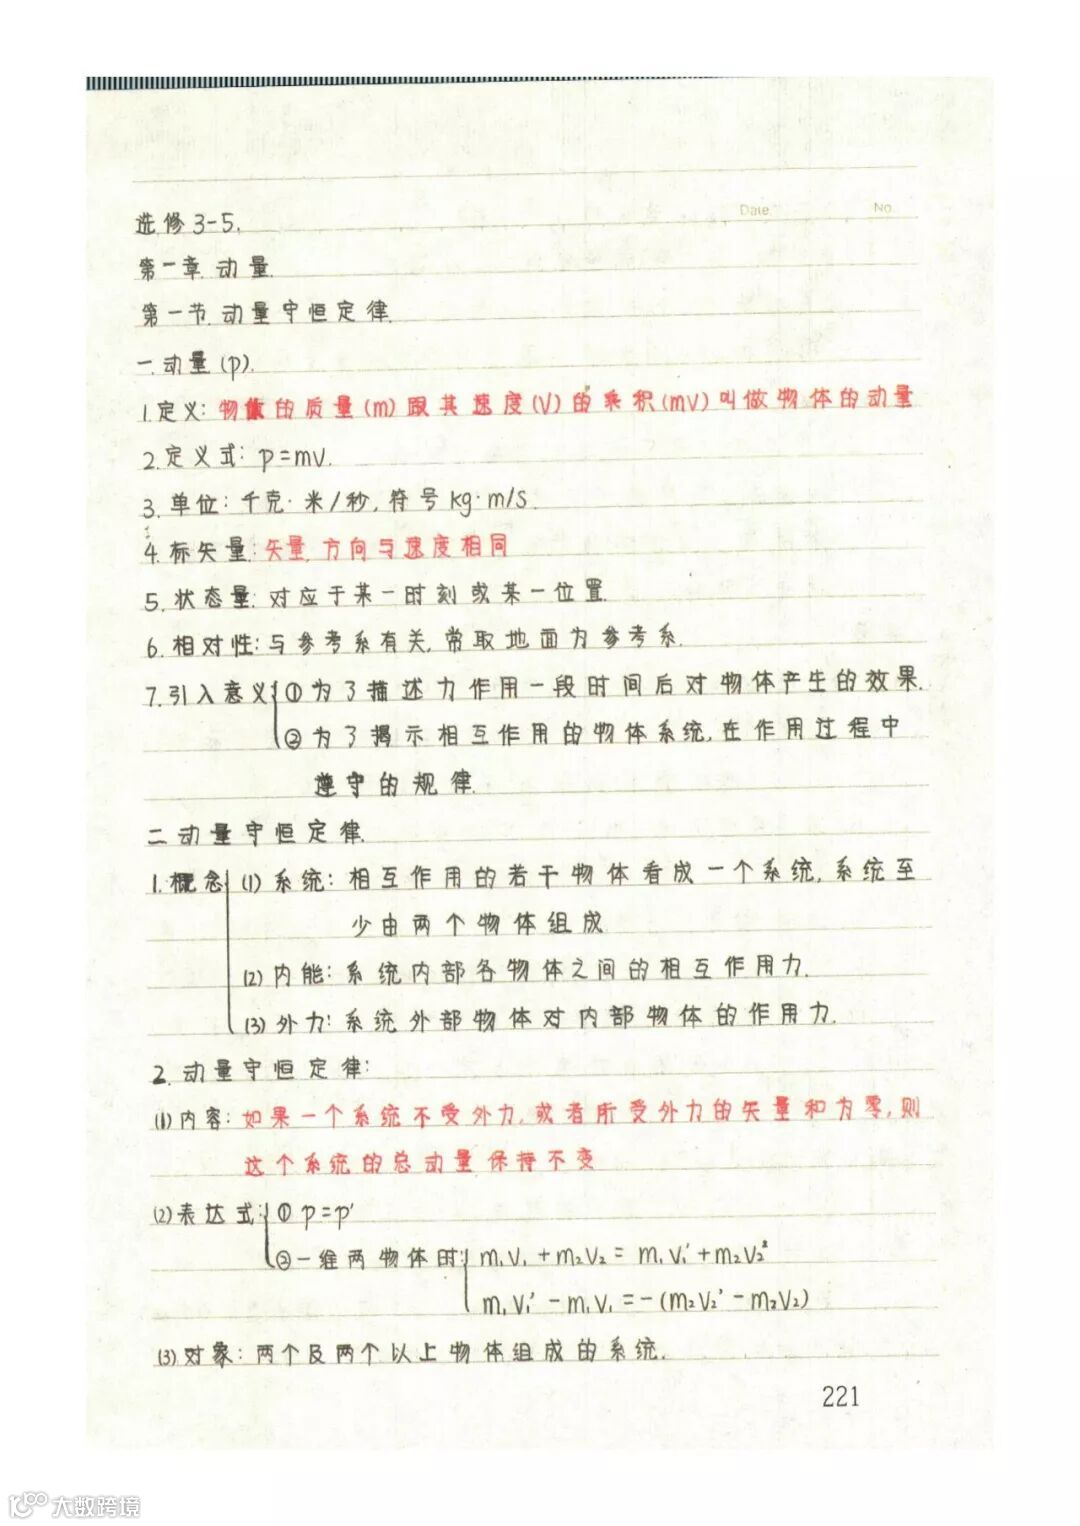 Date
No.
选修3-5.
第一章.动量.
第一节.动量守恒定律.
一.动量(p).
1.定义:物体的质量(m)跟其速度(V)的乘积(mV)叫做物体的动量
2.定义式:p=mv.
3.单位:千克·米/秒,符号kg·m/s.
4.标矢量:矢量,方向与速度相同
5.状态量:对应于某一时刻或某一位置.
6.相对性:与参考系有关,常取地面为参考系.
7.引入意义{①为了描述力作用一段时间后对物体产生的效果.
②为了揭示相互作用的物体系统,在作用过程中
遵守的规律.
二.动量守恒定律.
1.概念{(1)系统:相互作用的若干物体看成一个系统,系统至
少由两个物体组成.
(2)内能:系统内部各物体之间的相互作用力.
(3)外力:系统外部物体对内部物体的作用力.
2.动量守恒定律:
(1)内容:如果一个系统不受外力,或者所受外力的矢量和为零,则
这个系统的总动量保持不变
(2)表达式:{①p=p'
②一维两物体时:{m₁V₁+m₂V₂=m₁V₁'+m₂V₂'
m₁V₁'-m₁V₁=-(m₂V₂'-m₂V₂)
(3)对象:两个及两个以上物体组成的系统.
221
大数跨境